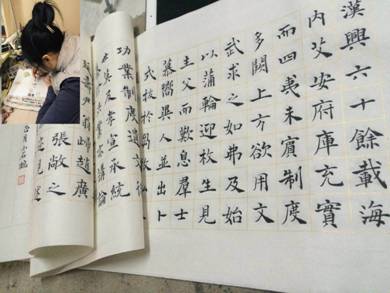 漢興六十餘載海
內艾安府庫充實
而四夷未賓制度
多闕上方欲用文
武求之如弗及始
以蒲輪迎枚生見
主父而歎息群士
慕嚮異人並出卜
式拔於芻牧
功業制度遺
莫及孝宣承統
講論
壽尹翁歸趙廣
張敞之
見述